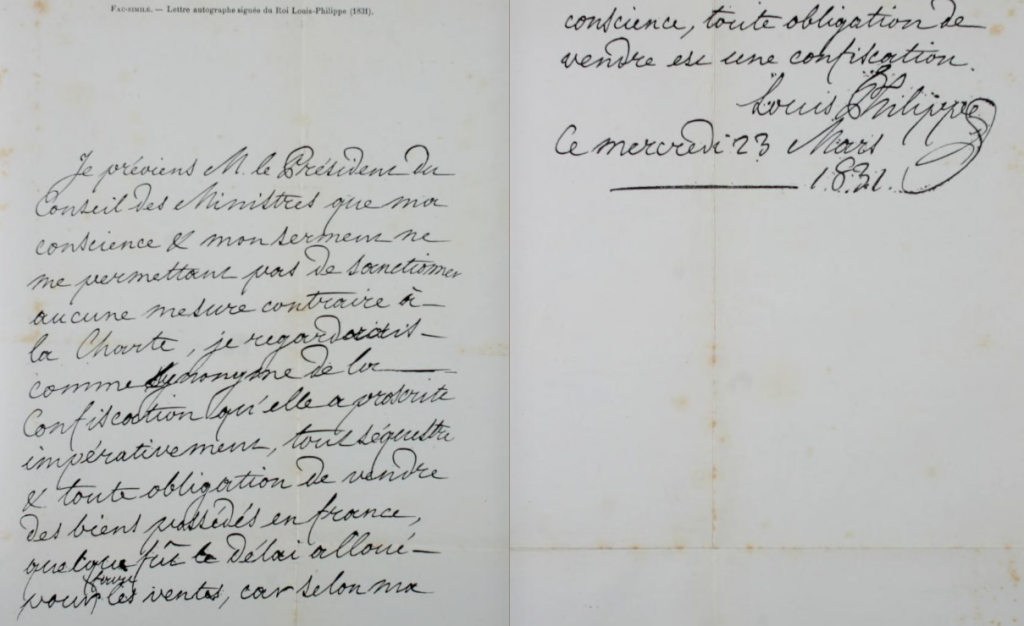 FAC-SIMILE. — Lettre autographe signée du Roi Louis-Philippe (1831).
Je préviens M. le Président du
Conseil des Ministres que ma
conscience & mon serment ne
me permettant pas de sanctionner
aucune mesure contraire à
la Charte, je regardais
comme synonyme de la
Confiscation qu'elle a proscrite
impérativement, tout séquestre
& toute obligation de vendre
des biens possédés en france,
quelque fût le délai alloué
pour les ventes, car selon ma
conscience, toute obligation de
vendre est une confiscation.
Louis Philippe
Ce mercredi 23 Mars
1831.